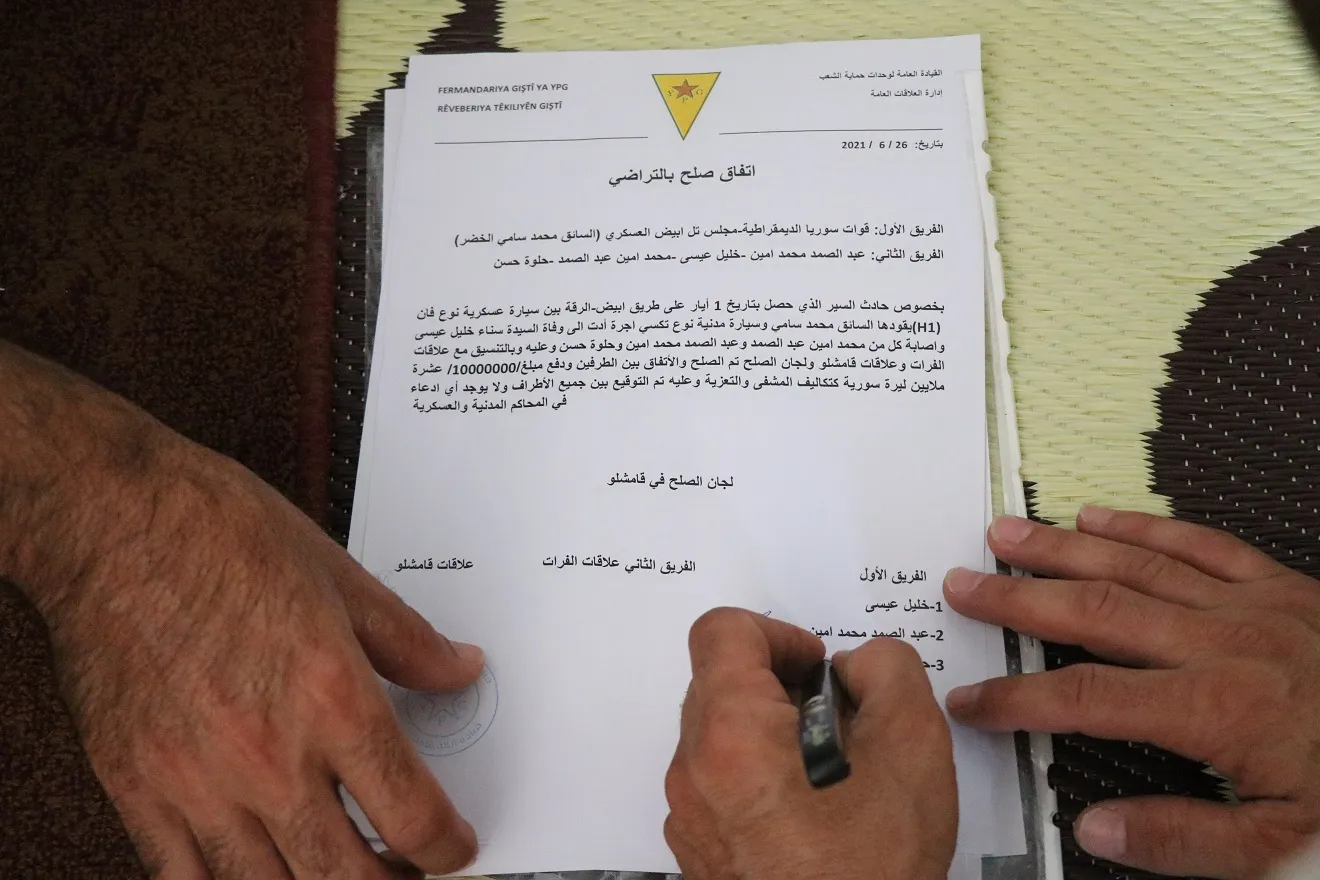 FERMANDARIYA GIŞTÎ YA YPG
RÊVEBERIYA TÊKILIYÊN GIŞTÎ
YPG
القيادة العامة لوحدات حماية الشعب
إدارة العلاقات العامة
بتاريخ: 26 / 6 / 2021
اتفاق صلح بالتراضي
الفريق الأول: قوات سوريا الديمقراطية-مجلس تل ابيض العسكري (السائق محمد سامي الخضر)
الفريق الثاني: عبد الصمد محمد امين -خليل عيسى -محمد امين عبد الصمد -حلوة حسن
بخصوص حادث السير الذي حصل بتاريخ 1 أيار على طريق ابيض-الرقة بين سيارة عسكرية نوع فان
(H1)يقودها السائق محمد سامي وسيارة مدنية نوع تكسي اجرة أدت الى وفاة السيدة سناء خليل عيسى
واصابة كل من محمد امين عبد الصمد وعبد الصمد محمد امين وحلوة حسن وعليه وبالتنسيق مع علاقات
الفرات وعلاقات قامشلو ولجان الصلح تم الصلح والأتفاق بين الطرفين ودفع مبلغ/10000000/ عشرة
ملايين ليرة سورية كتكاليف المشفى والتعزية وعليه تم التوقيع بين جميع الأطراف ولا يوجد أي ادعاء
في المحاكم المدنية والعسكرية
لجان الصلح في قامشلو
الفريق الأول
الفريق الثاني علاقات الفرات
علاقات قامشلو
1-خليل عيسى
2-عبد الصمد محمد امين
3-